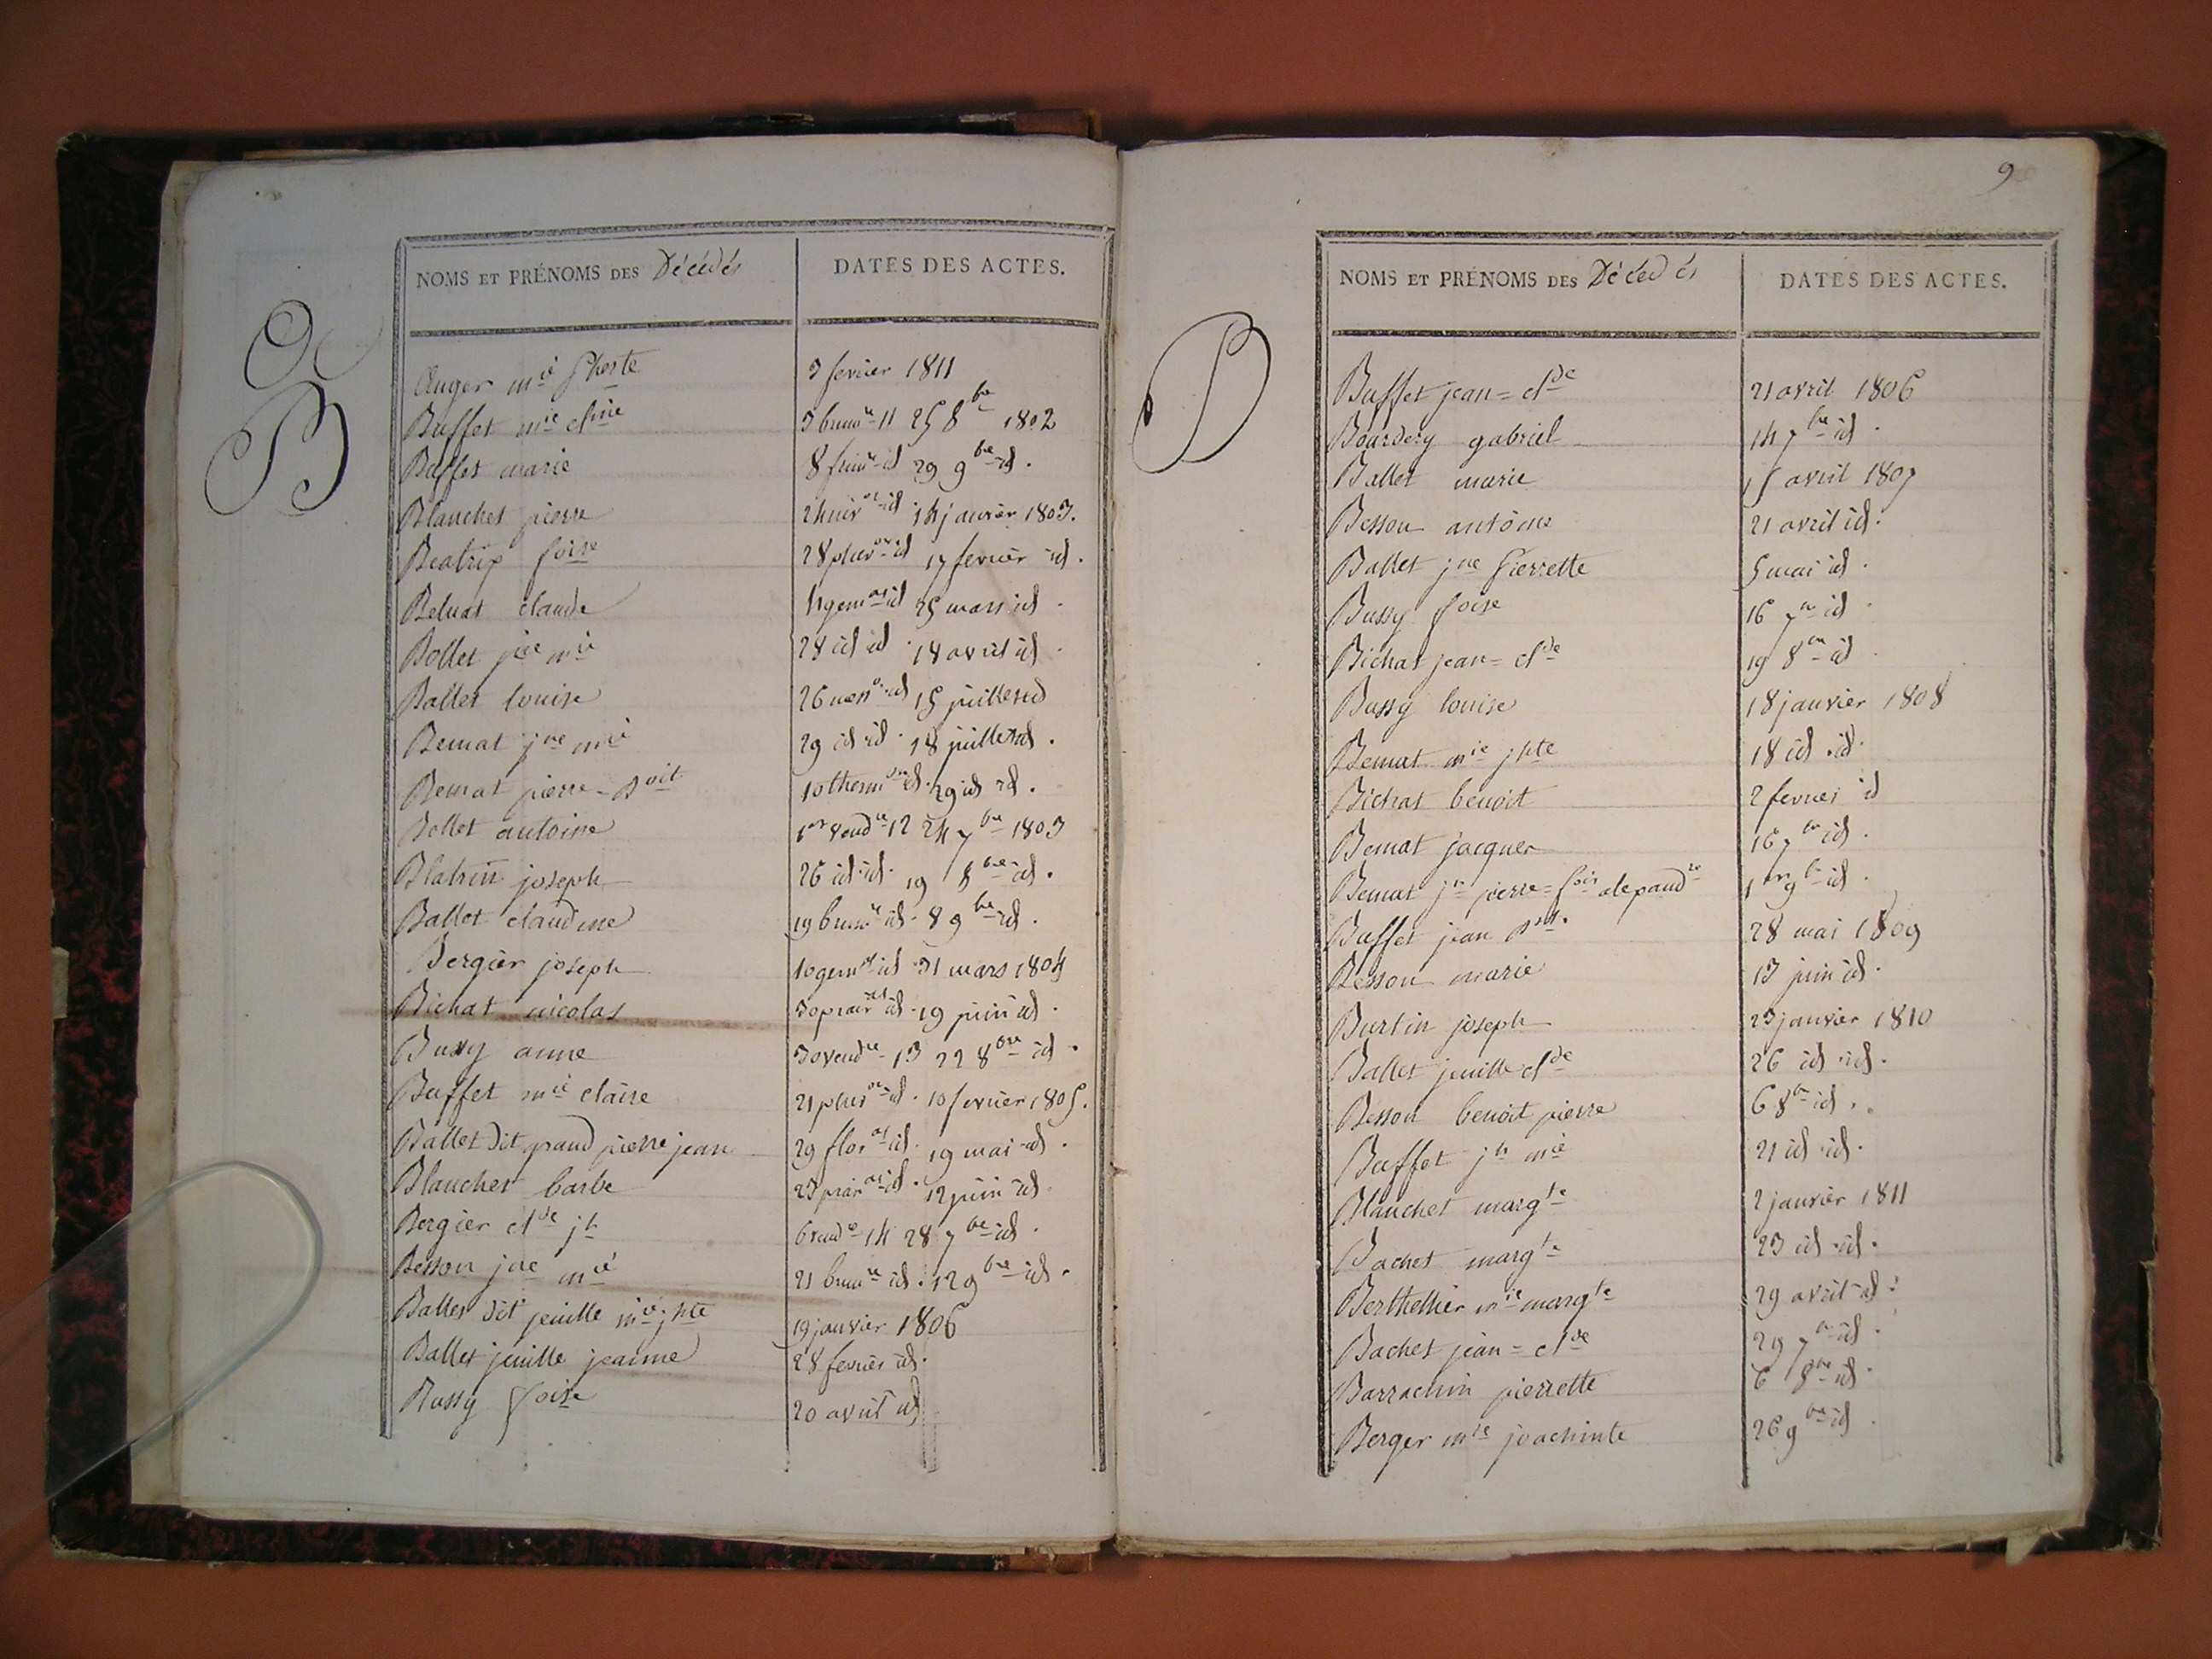 NOMS ET PRÉNOMS DES Décédés DATES DES ACTES.
B
Auger mie Jhoste 3 fevrier 1811
Buffet mie clme 3 brumre 11 25 8bre 1802
Buffet marie 8 frimre id 29 9bre id.
Blanchet pierre 24 nivose id 14 janvier 1803.
Beatrix foise 28 pluvose id 17 fevrier id.
Belmat claude 4 germal id 25 mars id.
Bollet jne mie 28 id id. 18 avril id.
Ballet louise 26 messor id 15 juillet id
Bemat jne mie 29 id id. 18 juillet id.
Bemat pierre-Boit 10 thermor id. 29 id id.
Bollet antoine 1er vendre 12 24 7bre 1803
Blatrin joseph 26 id id. 19 8bre id.
Ballet claudine 19 brumre id. 8 9bre id.
Bergier joseph 10 germal id 31 mars 1804
Bichat nicolas 30 prairal id. 19 juin id.
Bussy anne 30 vendre 13 22 8bre id.
Buffet mie claire 21 pluvose id. 10 fevrier 1805.
Ballet dit grand pierre jean 29 floral id. 19 mai id.
Blanchet barbe 23 prairal id. 12 juin id.
Bergier clde jh 6 vendre 14 28 7bre id.
Besson jne mie 21 brumre id. 12 9bre id.
Ballet dit jeuille mie jhte 19 janvier 1806
Ballet jeuille jeanne 28 fevrier id.
Bussy foise 20 avril id
9
NOMS ET PRÉNOMS DES Décédés DATES DES ACTES.
B
Buffet jean=clde 21 avril 1806
Bourdery gabriel 14 7bre id.
Ballet marie 15 avril 1807
Besson antoine 21 avril id.
Ballet jne Pierrette 5 mai id.
Bussy foise 16 7re id.
Bichat jean=clde 19 8re id.
Bussy louise 18 janvier 1808
Bemat mie jhte 18 id. id.
Bichat benoit 2 fevrier id
Bemat jacques 16 7re id.
Bemat jn pierre=fois alexandre 1er 9re id.
Buffet jean Btte. 28 mai 1809
Besson marie 13 juin id.
Burtin joseph 23 janvier 1810
Ballet jeuille clde 26 id. id.
Besson benoit pierre 6 8re id.
Buffet jh mie 21 id. id.
Blanchet margte 2 janvier 1811
Bachet margte 23 id. id.
Berthellier mie margte 29 avril id.
Bachet jean=clde 29 7re id.
Barrachin pierrette 6 8re id.
Berger mie joachinte 26 9bre id.